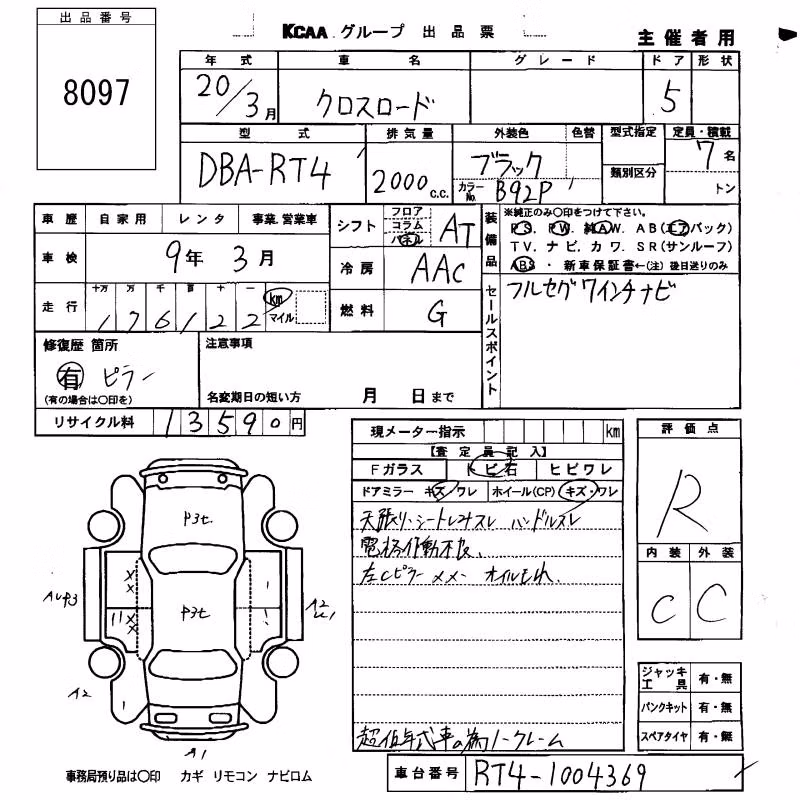 出品番号
8097
KCAA グループ 出品票
主催者用
年式 車名 グレード ドア 形状
20/3月 クロスロード 5
型式 排気量 外装色 色替 型式指定 定員・積載
DBA-RT4 2000 c.c. ブラック 7名
カラーNo. B92P 類別区分 トン
車歴 自家用 レンタ 事業.営業車
車検 9年 3月
走行 十万 万 千 百 十 一
176122 km マイル
シフト フロア コラム パネル AT
冷房 AAC
燃料 G
装備品
※純正のみ○印をつけて下さい。
PS. PW. 純AW. AB(エアバック)
TV. ナビ. カワ. SR(サンルーフ)
ABS ・ 新車保証書←(注) 後日送りのみ
セールスポイント
フルセグワインチナビ
修復歴 箇所
有 ピラー
(有の場合は○印を)
注意事項
名変期日の短い方 月 日まで
リサイクル料 13590円
現メーター指示 km
【査定員記入】
Fガラス トビ石 ヒビワレ
ドアミラー キズ/ワレ ホイール(CP) キズ・ワレ
天張り、シートレスレ ハンドルスレ
電格作動不良、
左Cピラー メメー オイルもれ、
超低年式車の為ノークレーム
評価点
R
内装 外装
C C
ジャッキ工具 有・無
パンクキット 有・無
スペアタイヤ 有・無
P3t
P3t
A2
A2
A1
事務局預り品は○印 カギ リモコン ナビロム
車台番号 RT4-1004369